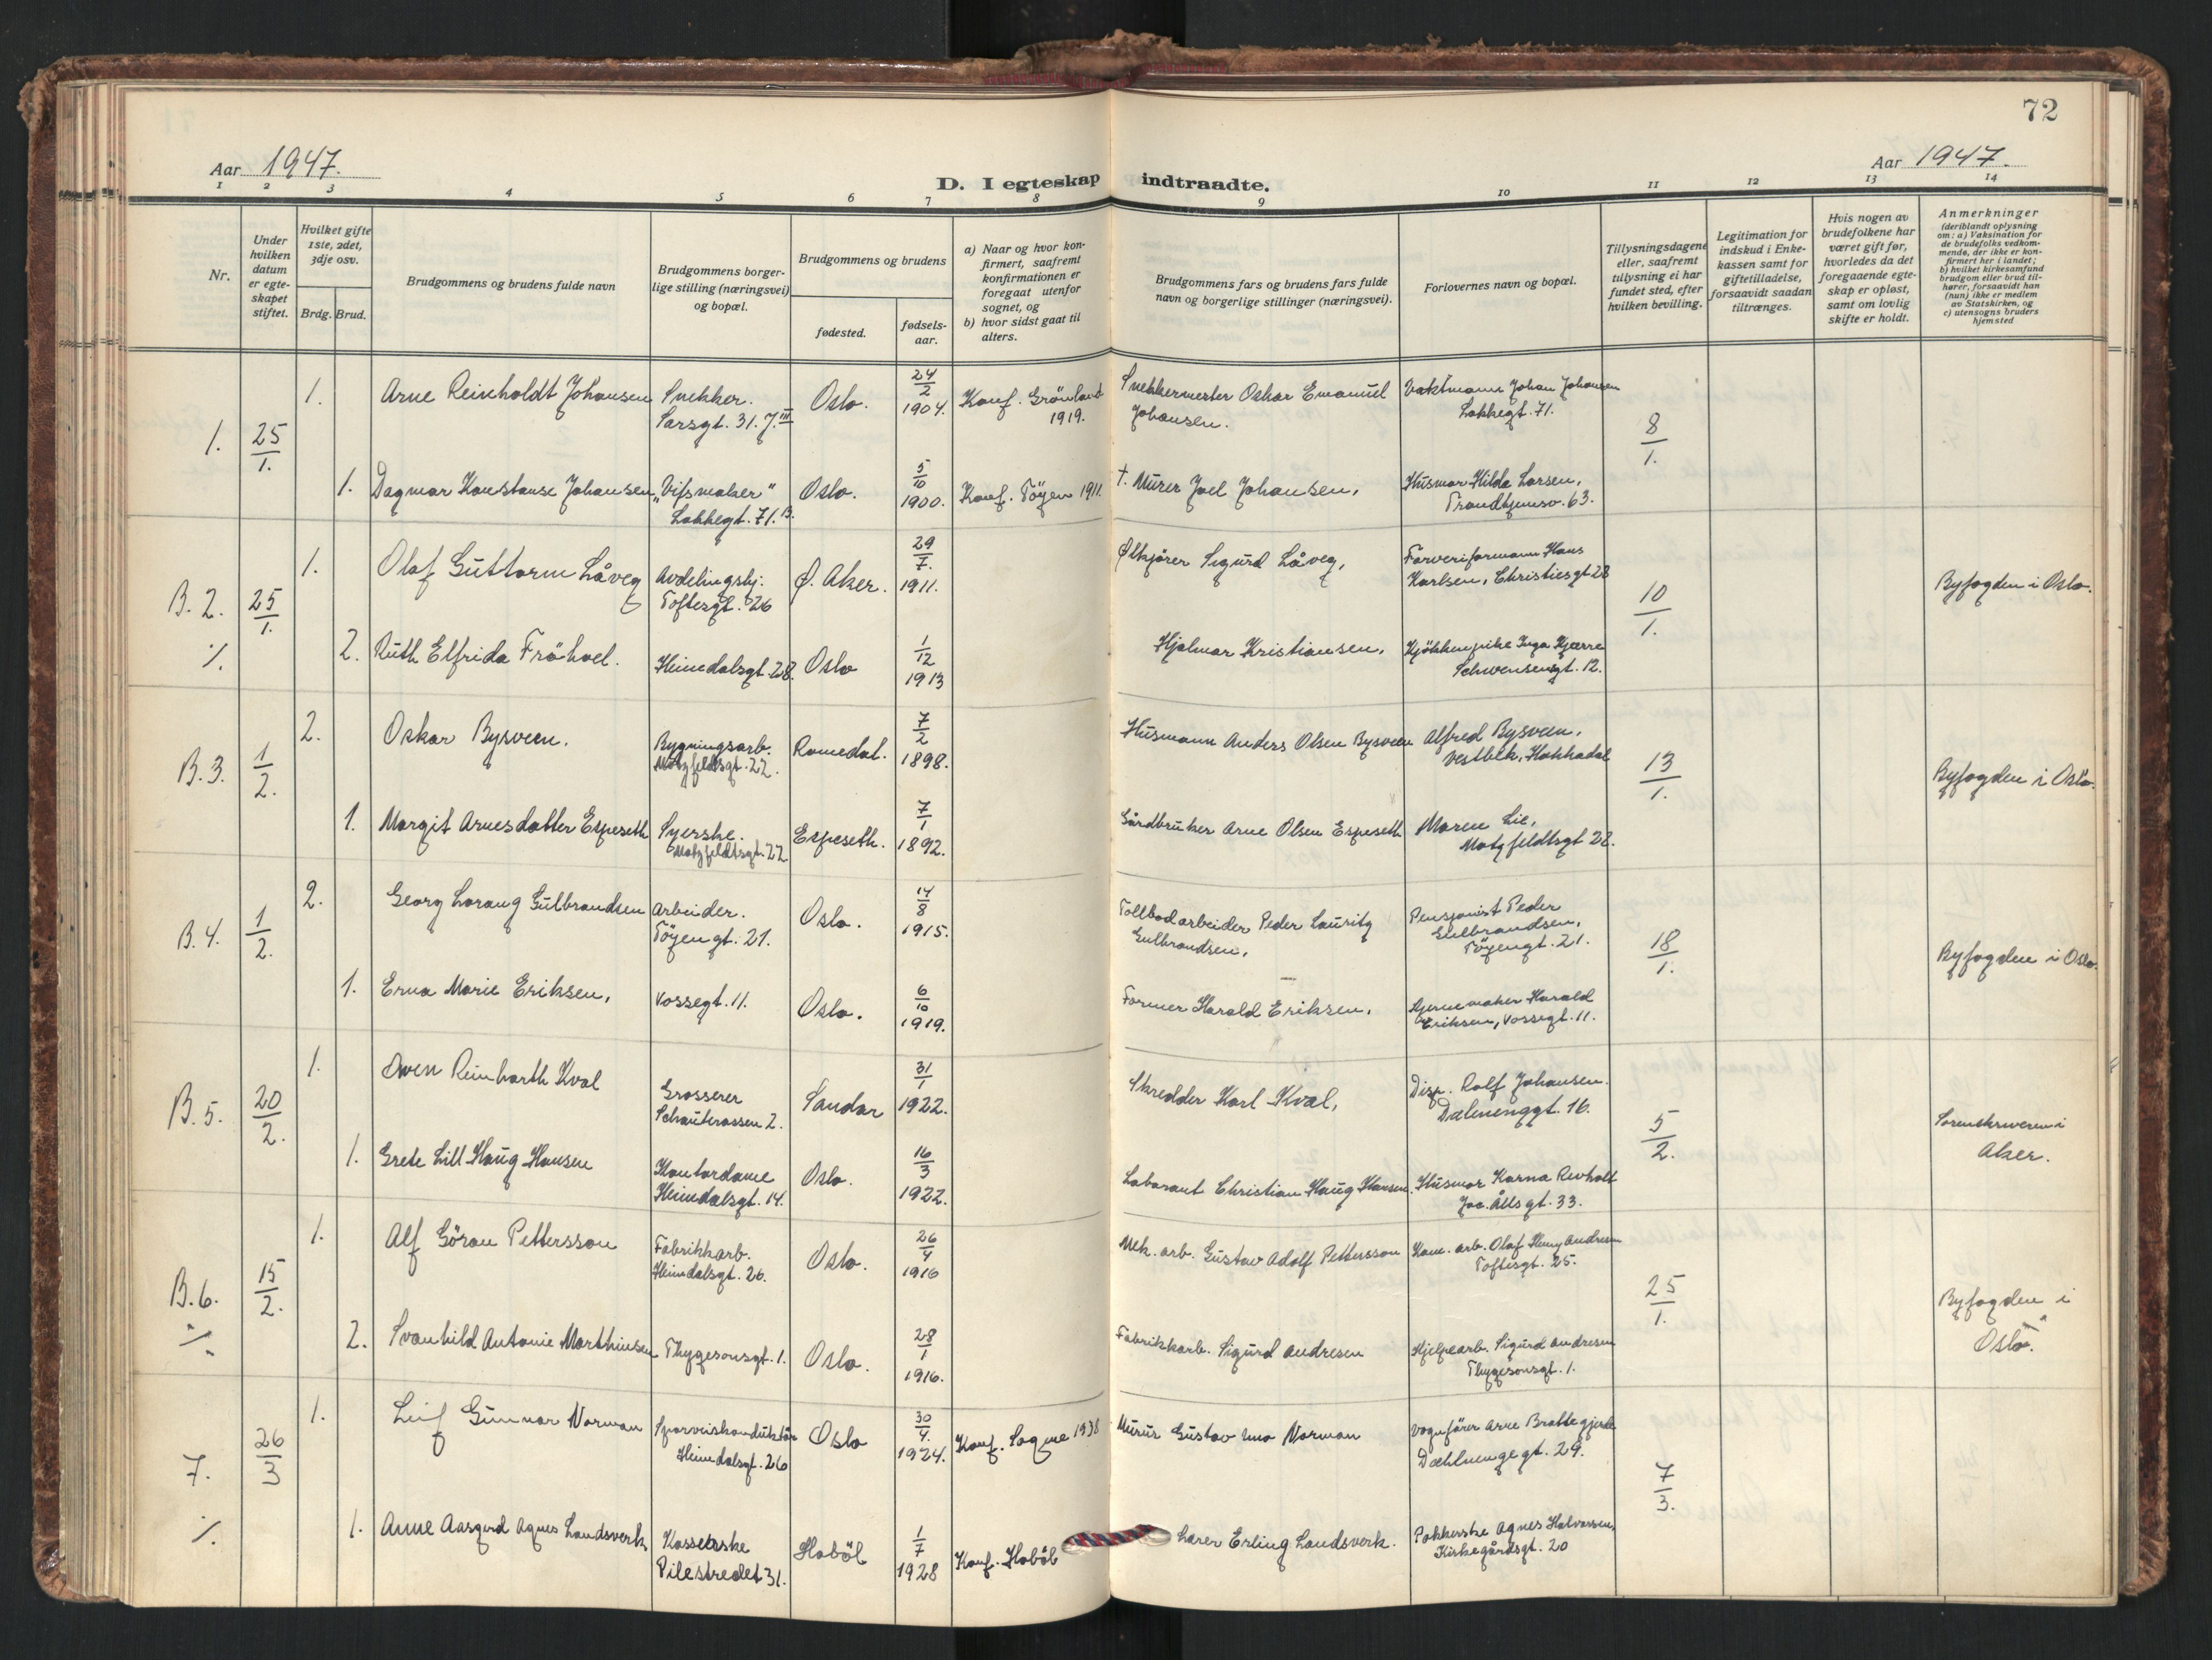 72
Aar 1947.
Aar 1947.
D. I egteskap indtraadte.
1 2 3 4 5 6 7 8 9 10 11 12 13 14
Nr.
Under
hvilken
datum
er egte-
skapet
stiftet.
Hvilket gifte
1ste, 2det,
3dje osv.
Brdg. Brud.
Brudgommens og brudens fulde navn
Brudgommens borger-
lige stilling (næringsvei)
og bopæl.
Brudgommens og brudens
fødested.
fødsels-
aar.
a) Naar og hvor kon-
firmert, saafremt
konfirmationen er
foregaat utenfor
sognet, og
b) hvor sidst gaat til
alters.
Brudgommens fars og brudens fars fulde
navn og borgerlige stillinger (næringsvei).
Forlovernes navn og bopæl.
Tillysningsdagene
eller, saafremt
tillysning ei har
fundet sted, efter
hvilken bevilling.
Legitimation for
indskud i Enke-
kassen samt for
giftetilladelse,
forsaavidt saadan
tiltrænges.
Hvis nogen av
brudefolkene har
været gift før,
hvorledes da det
foregaaende egte-
skap er opløst,
samt om lovlig
skifte er holdt.
Anmerkninger
(deriblandt oplysning
om: a) Vaksination for
de brudefolks vedkom-
mende, der ikke er kon-
firmert her i landet;
b) hvilket kirkesamfund
brudgom eller brud til-
hører, forsaavidt han
(hun) ikke er medlem
av Statskirken, og
c) utensogns bruders
hjemsted
1. 25/1.
1. Arne Reinholdt Johansen
Snekker.
Sarsgt. 31.7.III
Oslo.
24/2 1904.
Konf. Grönland
1919.
Snekkermester Oskar Emanuel
Johansen.
Vaktmann Johan Johansen
Lakkegt. 71.
8/1.
1. Dagmar Konstanse Johansen
"Vifsmaker"
Lakkegt. 71.B.
Oslo.
5/10 1900.
Konf. Töyen 1911.
† Murer Joel Johansen,
Husmor Hilda Larsen,
Trondhjemsv. 63.
B. 2. 25/1.
1. Olaf Guttorm Låveg
Avdelingsbj.
Toftesgt. 26
Ø. Aker.
29/7. 1911.
Ølkjörer Sigurd Låveg,
Farveriformann Hans
Karlsen, Christiesgt 28
10/1.
Byfogden i Oslo.
./.
2. Ruth Elfrida Fröhoel.
Heimdalsgt. 28.
Oslo
1/12 1913
Hjalmar Kristiansen,
Kjökkenpike Inga Kjærre
Schwensensgt. 12.
B. 3. 1/2.
2. Oskar Bysveen.
Bygningsarb.
Motzfeldtsgt. 22.
Romedal.
7/2 1898.
Husmann Anders Olsen Bysveen
Alfred Bysveen,
Vestbek, Hakkadal
13/1.
Byfogden i Oslo.
1. Margit Arnesdatter Espeseth
Syerske.
Motzfeldtsgt. 22
Espeseth.
7/1 1892.
Gårdbruker Arne Olsen Espeseth
Maren Lie,
Motzfeldtsgt 22.
B. 4. 1/2.
2. Georg Lorang Gulbrandsen
Arbeider.
Töyengt. 21.
Oslo.
14/8 1915.
Tollbodarbeider Peder Lauritz
Gulbrandsen,
Pensjonist Peder
Gulbrandsen,
Töyengt. 21.
18/1.
Byfogden i Oslo.
1. Erna Marie Eriksen,
Vossegt. 11.
Oslo.
6/10 1919.
Former Harald Eriksen,
Kjernemaker Harald
Eriksen, Vossegt. 11.
B. 5. 20/2.
1. Owen Reinharth Kval
Grosserer
Schauterassen 2.
Sandar
31/1 1922.
Skredder Karl Kval,
Disp. Rolf Johansen.
Dælenenggt. 16.
5/2.
Sorenskriveren i
Aker.
1. Grete Lill Haug Hansen
Kontordame
Heimdalsgt. 14.
Oslo.
16/3 1922.
Laborant Christian Haug Hansen.
Husmor Karna Revholt
Jac. Ålls gt. 33.
B. 6. 15/2.
1. Alf Göran Pettersson
Fabrikkarb.
Heimdalsgt. 26.
Oslo.
26/4 1916
Mek. arb. Gustav Adolf Pettersson
Kom. arb. Olaf Henry Andresen
Toftesgt. 25.
25/1.
Byfogden i
Oslo.
./.
2. Svanhild Antonie Marthinsen
Thygesonsgt. 1.
Oslo.
28/1 1916.
Fabrikkarb. Sigurd Andresen
Hjelpearb. Sigurd Andresen
Thygesonsgt. 1.
7. 26/3
1. Leif Gunnar Norman
Sporveiskonduktör
Heimdalsgt. 26
Oslo
30/4. 1924.
Konf. Sagene 1938
Murer Gustav Uno Norman
Vognförer Arne Brattegjerde
Dæhlenengegt. 29.
7/3.
./.
1. Anne Aasgerd Agnes Landsverk
Kassererske
Pilestredet 31.
Hobøl
1/7 1928
Konf. Hobøl
Lærer Erling Landsverk.
Pakkerske Agnes Halvorsen,
Kirkegårdsgt. 20